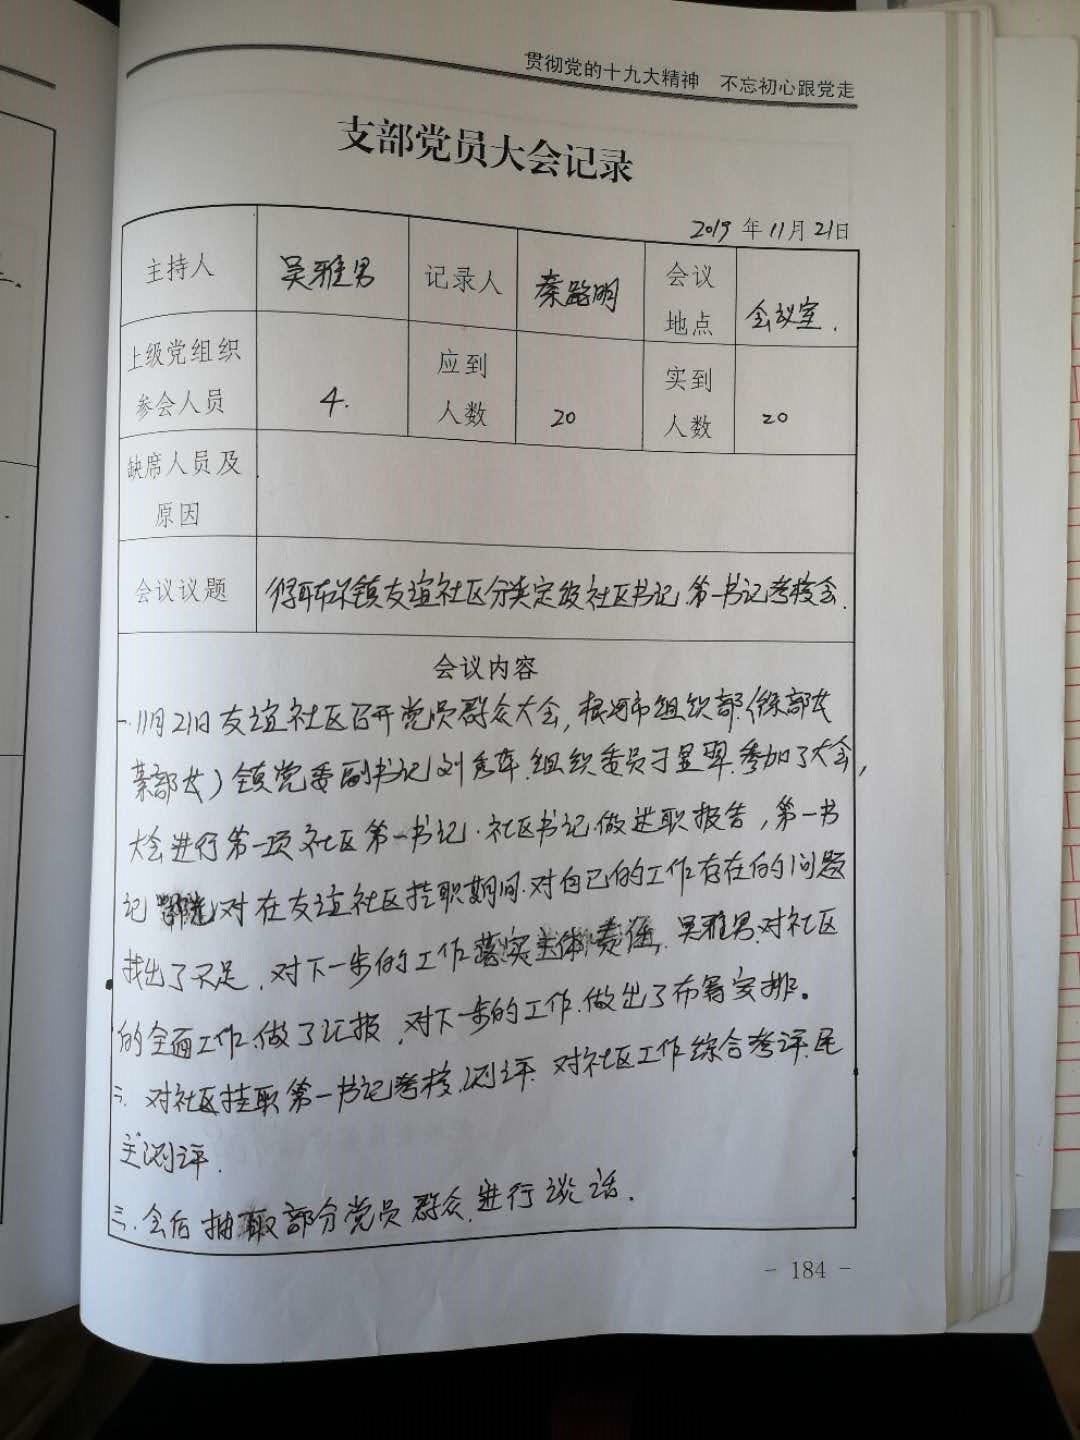 贯彻党的十九大精神 不忘初心跟党走
支部党员大会记录
2019 年 11 月 21 日
主持人 吴雅男 记录人 秦路明 会议地点 会议室.
上级党组织参会人员 4. 应到人数 20 实到人数 20
缺席人员及原因
会议议题 镇友谊社区分类定级社区书记.第一书记考核会.
会议内容
一.11月21日友谊社区召开党员群众大会,根河市组织部(徐部长
部长)镇党委副书记刘秀 .组织委员于 .参加了大会,
大会进行第一项社区第一书记.社区书记.做述职报告,第一书
记 对在友谊社区挂职期间.对自己的工作存在的问题
找出了不足,对下一步的工作落实主体责任.吴雅男.对社区
的全面工作.做了汇报,对下一步的工作.做出了布署安排。
二.对社区挂职第一书记考核.测评.对社区工作综合考评.民
主测评.
三.会后抽取部分党员群众.进行谈话.
- 184 -